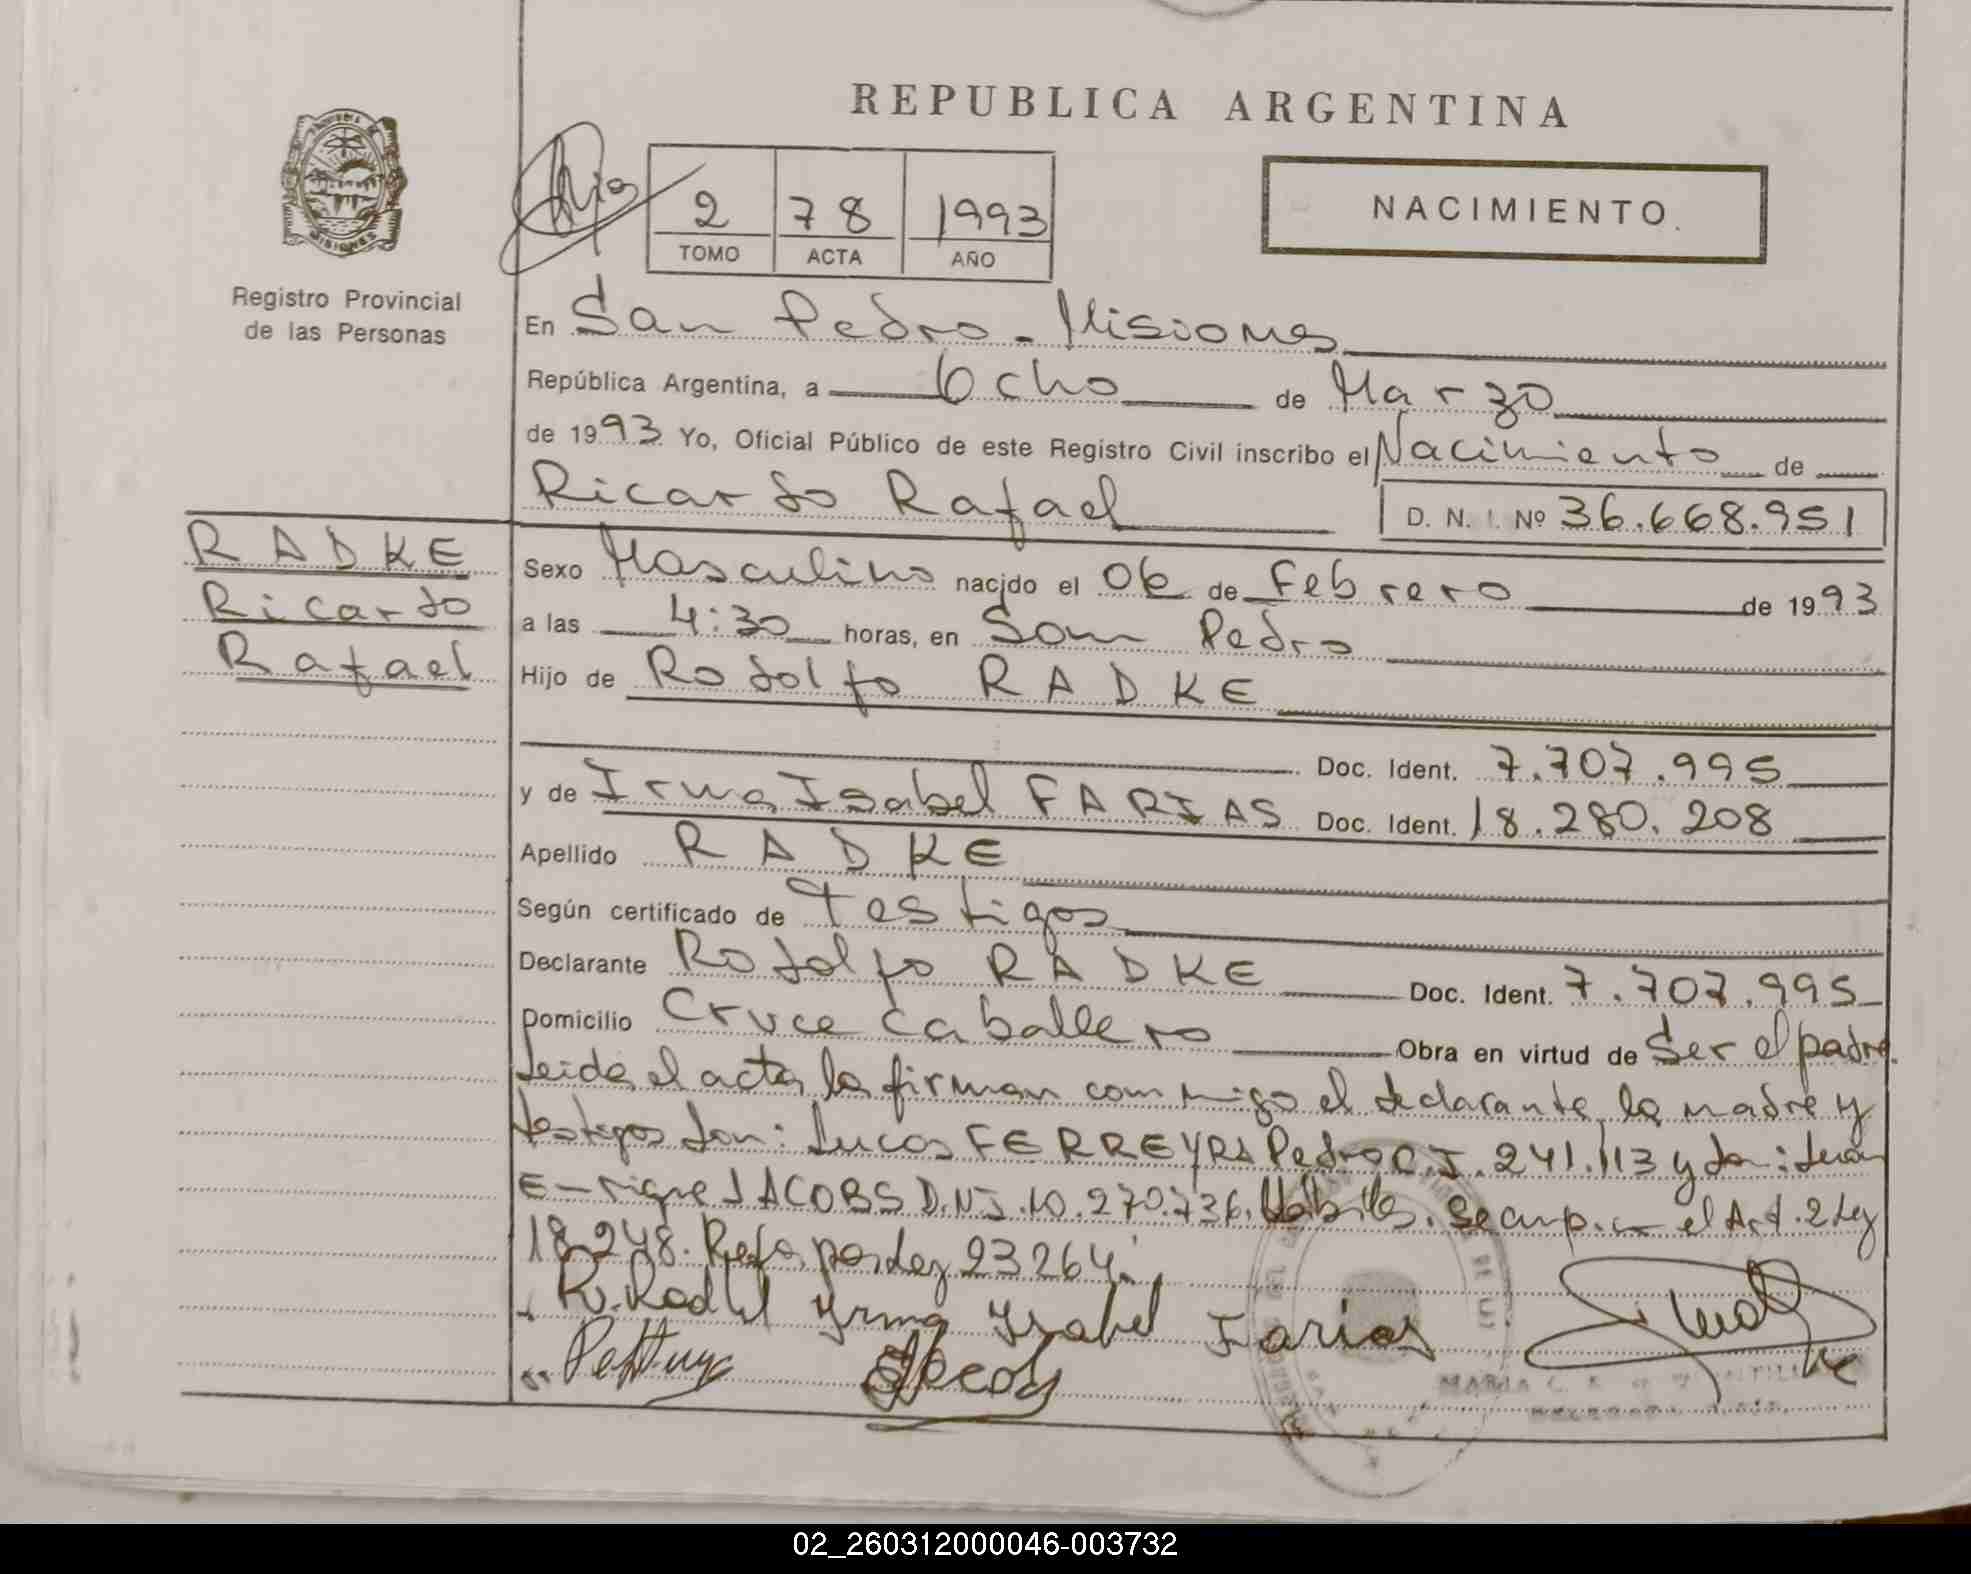 REPUBLICA ARGENTINA
NACIMIENTO
2 78 1993
TOMO ACTA AÑO
Registro Provincial
de las Personas
En San Pedro - Misiones
República Argentina, a Ocho de Marzo
de 1993 Yo, Oficial Público de este Registro Civil inscribo el Nacimiento de
Ricardo Rafael D. N. I. Nº 36.668.951
RADKE
Ricardo
Rafael
Sexo Masculino nacido el 06 de Febrero de 1993
a las 4:30 horas, en San Pedro
Hijo de Rodolfo RADKE
Doc. Ident. 7.707.995
y de Irma Isabel FARIAS Doc. Ident. 18.280.208
Apellido RADKE
Según certificado de Testigos
Declarante Rodolfo RADKE Doc. Ident. 7.707.995
Domicilio Cruce Caballero Obra en virtud de Ser el padre.
Leida el acta la firman conmigo el declarante la madre y
testigos Don: Lucas FERREYRA Pedro C.I. 241.113 y Don:
Enrique JACOBS D.N.I. 10.270.736. Habiles. Se cump. el Art. 2 Ley
18.248. Refo. por Ley 23264.
R. Radke Yrma Ysabel Farias
MARIA
02_260312000046-003732